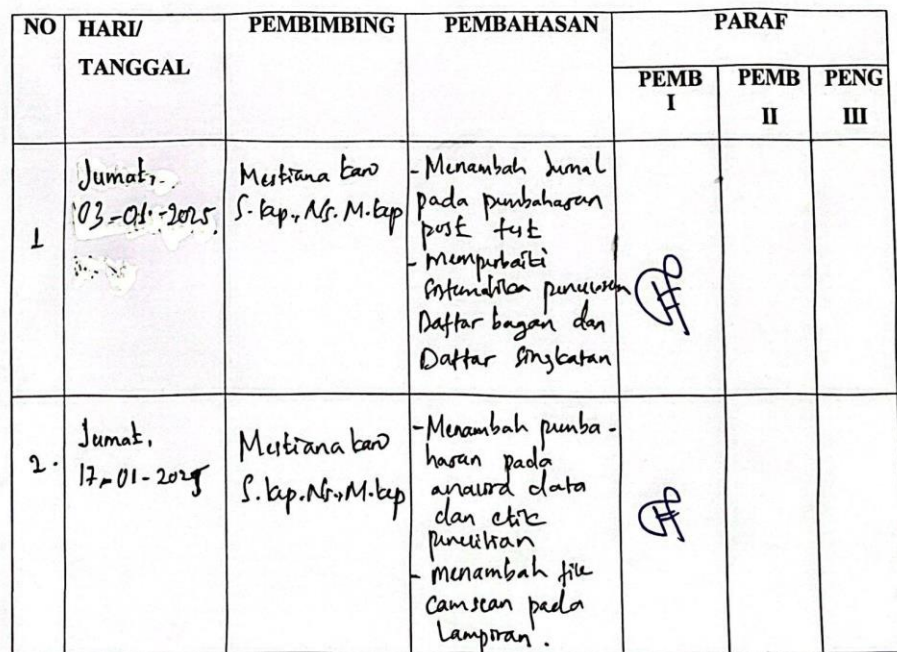 NO HARI/ TANGGAL PEMBIMBING PEMBAHASAN PARAF
PEMB I PEMB II PENG III
1
Jumat,
03-01-2025
Mestiana karo
S.kep., Ns. M.kep
- Menambah Jurnal
pada pembahasan
post test
- memperbaiki
sistematika penulisan
Daftar bagan dan
Daftar Singkatan
2.
Jumat,
17-01-2025
Mestiana karo
S.kep.Ns., M.kep
- Menambah pemba-
hasan pada
analisa data
dan etik
penelitian
- menambah file
camscan pada
Lampiran.